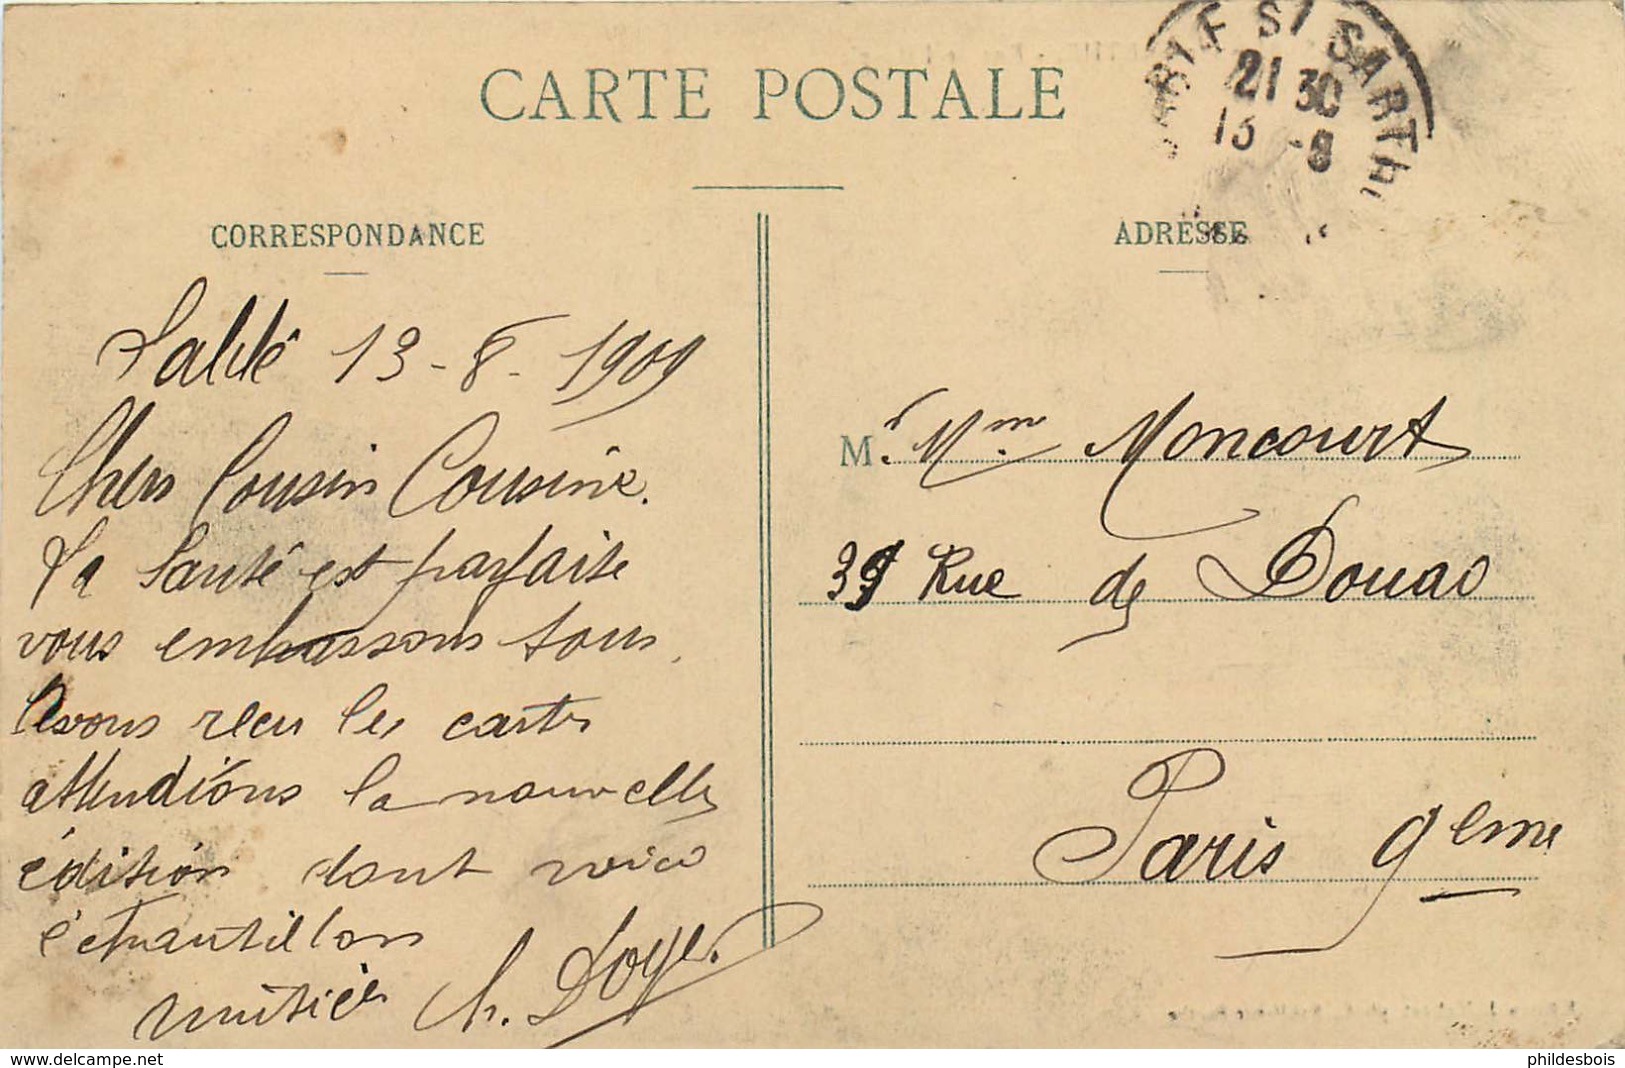 CARTE POSTALE
SABLE S/ SARTHE
21 30
13 -8
CORRESPONDANCE
ADRESSE
Sablé 13-8-1909
Chers Cousin Cousine.
La Santé est parfaite
vous embrassons tous.
Avons reçu les cartes
attendions la nouvelle
édition dont voici
l'échantillon
Ch. Doyer
M. Mme Moncourt
39 Rue de Douai
Paris 9eme
www.delcampe.net
phildesbois